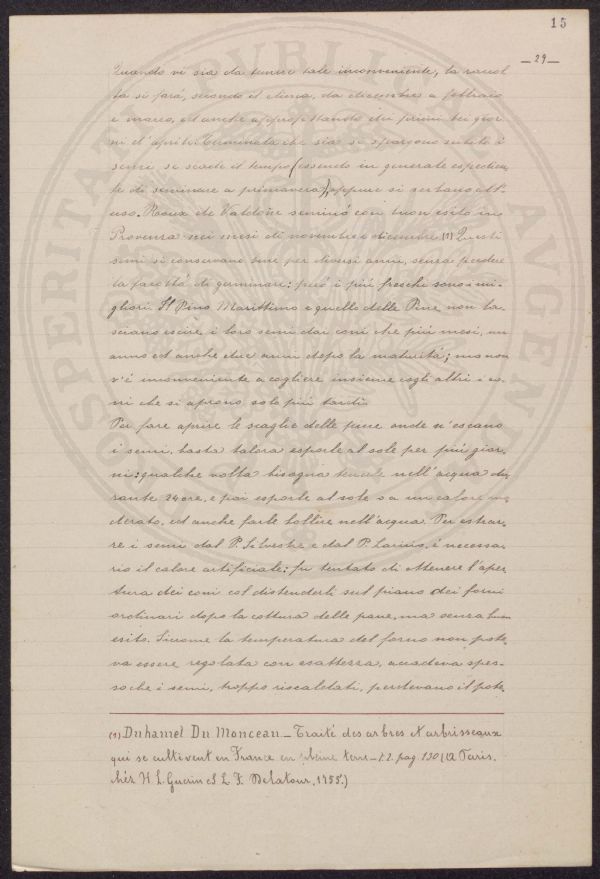 15
— 29 —
Quando vi sia da temere tale inconveniente, la raccol
ta si farà, secondo il clima, da dicembre a febbraio
e marzo, ed anche approfittando dei primi bei gior
ni d'aprile. Terminata che sia si spargono subito i
semi se scade il tempo (essendo in generale espedien
te di seminare a primavera), oppure si serbano all'
uso. Roux de Valdone seminò con buon esito in
Provenza nei mesi di novembre e dicembre (1) Questi
semi si conservano bene per diversi anni, senza perdere
la facoltà di germinare: però i più freschi sono i mi-
gliori. Il Pino Marittimo e quello delle Pine non la-
sciano escire i loro semi dai coni che più mesi, un
anno ed anche due anni dopo la maturità; ma non
v'è inconveniente a cogliere insieme cogli altri i co-
ni che si aprono solo più tardi.
Per fare aprire le scaglie delle pine onde n'escano
i semi, basta talora esporle al sole per più gior-
ni; qualche volta bisogna tenerle nell'acqua du-
rante 24 ore, e poi esporle al sole o a un calore mo
derato, ed anche farle bollire nell'acqua. Per estrar-
re i semi dal P. Silvestre e dal P. Laricio, è necessa-
rio il calore artificiale: fu tentato di ottenere l'aper
tura dei coni col distenderli sul piano dei forni
ordinari dopo la cottura delle pane, ma senza buon
esito. Siccome la temperatura del forno non pote
va essere regolata con esattezza, accadeva spes-
so che i semi, troppo riscaldati, perdevano il pote
(1) Duhamel Du Monceau — Traité des arbres et arbrisseaux
qui se cultivent en France en pleine terre — t. 2. pag. 130 (A Paris.
chéz H. L. Guerin et L. F. Delatour, 1755.)
PROSPERITATI PVBLICAE AVGENDAE